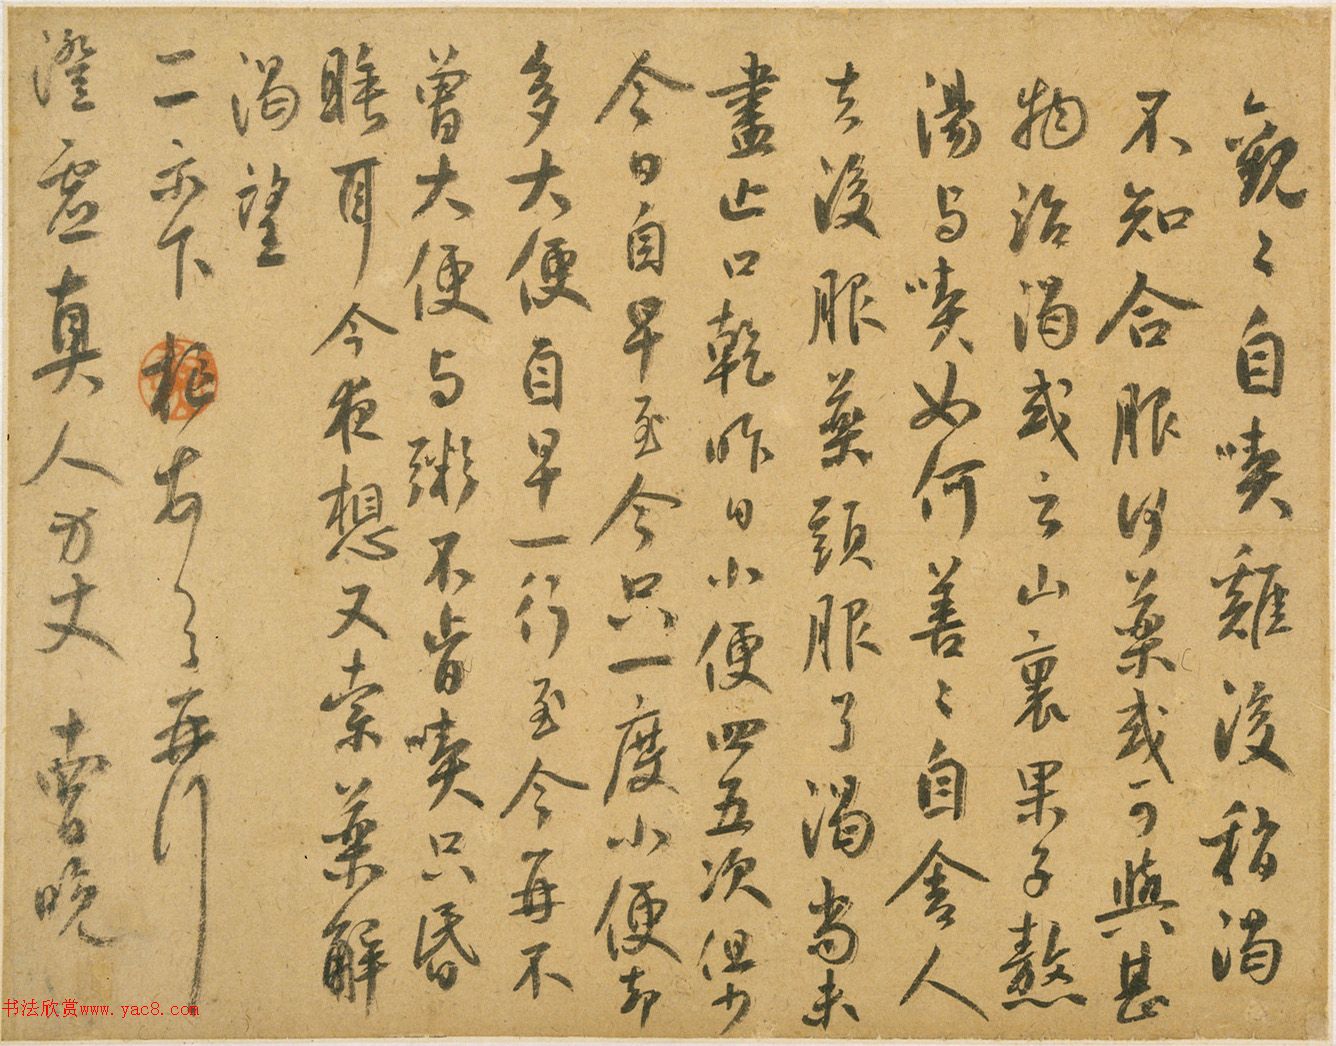 觀〻自喫難後稍渴
不知合服何藥或可與甚
物治渴或云山裏果子熬
湯与喫如何善〻自舍人
去後服藥頭服了渴尚未
盡止口乾昨日小便四五次但少
今日自早至今只一度小便却
多大便自早一行至今再不
曾大便与粥不肯喫只昏
睡耳今夜想又索藥解
渴望
二示下 拒再行
澄虛真人方丈 曹晚
书法欣赏www.yac8.com